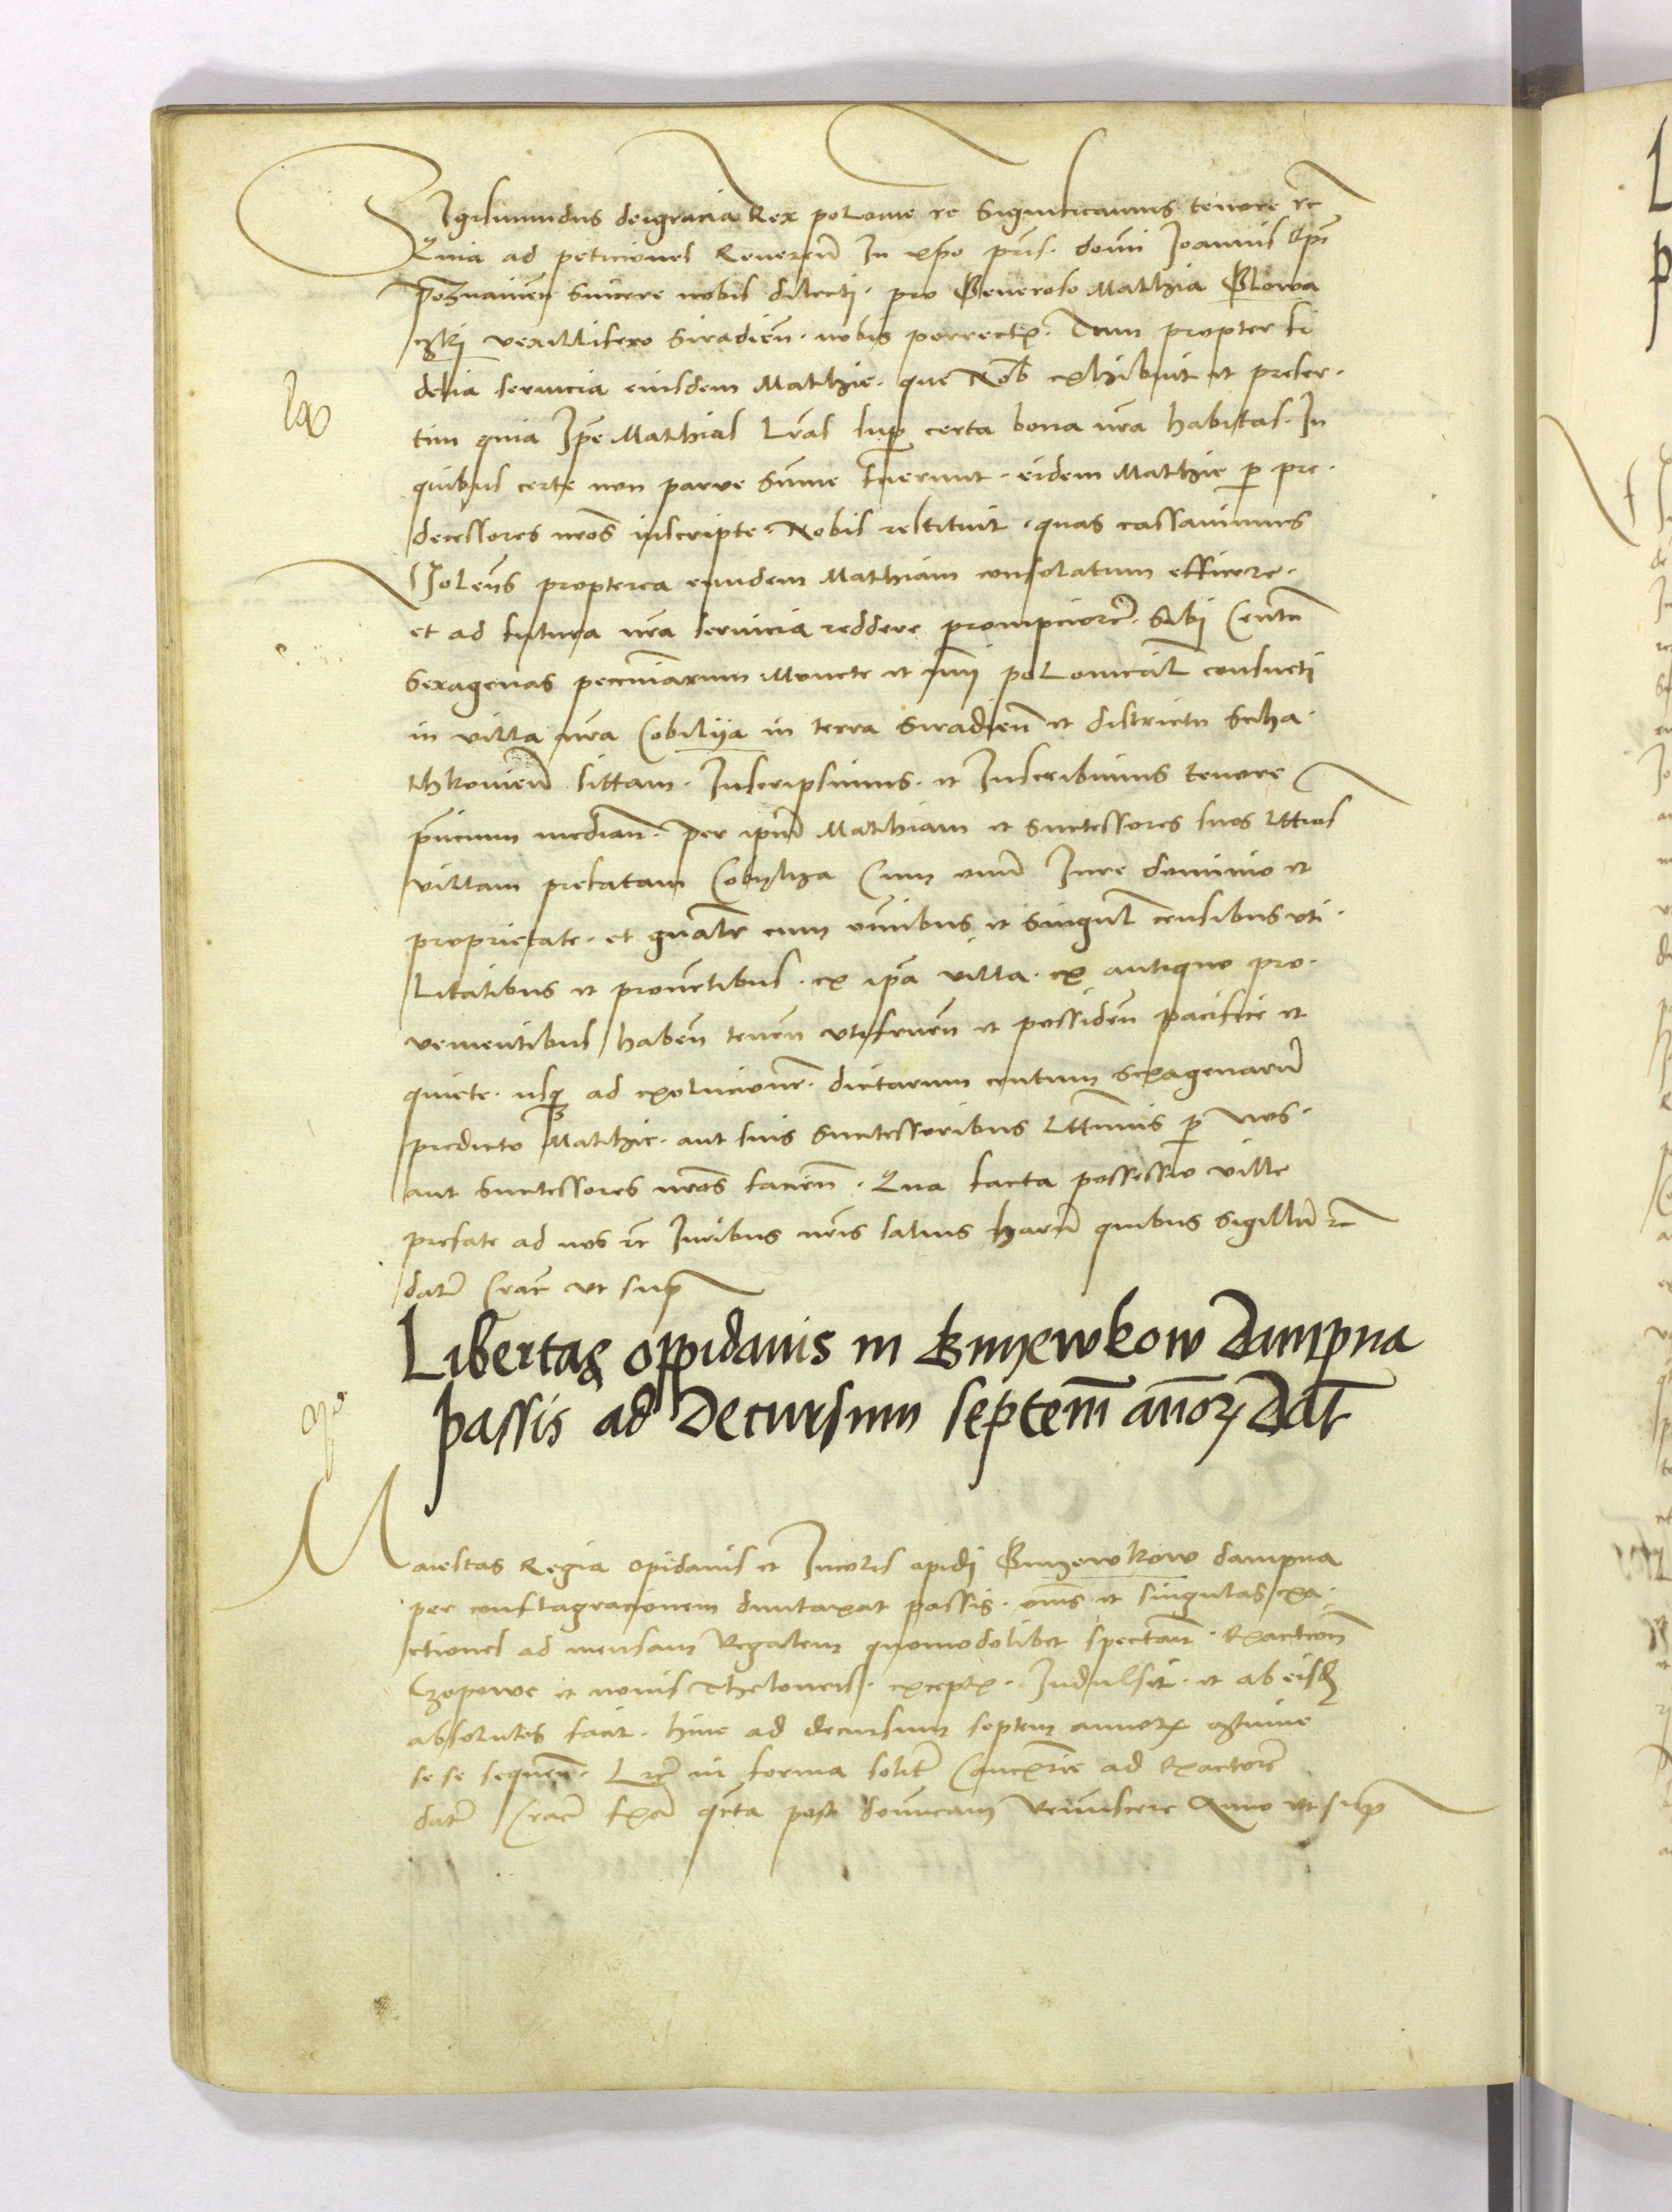 Sigismundus dei gracia Rex polonie rc Significamus tenore rc
Quia ad peticiones Reverenῦ In xp̄o pr̄is. domī Ioannis Ep̄i
poʒnanien̄ sincere nobis dilecti. pro Generoso Mathia Glowa
cʒkj vexillifero Siradien̄. nobis porrectꝭ. Tum propter fi
delia servicia eiusdem Mathie. que Nob̄ exhibuit et preser.
tim quia Ip̄e Mathias Lr̄as sup̱ certa bona nr̄a habitas. In
quibus certe non parve sūme fuerunt. eidem Mathie ꝑ pre.
decessores nr̄os inscripte. Nobis restituit. quas cassavimus
Volen̄s propterea eundem Mathiam consolatum efficere.
et ad futura nr̄a servicia reddere prompciorē. Sibi Centū
Sexagenas pecuniarum Monete et nūi polonicaꝉ consueti
in villa nr̄a Cobilija in terra Siradien̄ et districtu Scha.
thkovien̄ sittam. Inscripsimus. et Inscribimus tenore
pn̄cium median̄. per ip̄um Mathiam et successores suos ꝉttimos
villam prefatam Cobylya Cum omī Iure dominio et
proprietate. et gn̄aliter cum om̄ibus et singuꝉ censibus uti.
litatibus et provētibus. ex ip̄a villa. ex antiquo pro.
venientibus haben̄ tenen̄ utifruen̄ et possiden̄ pacifice et
quiete. usqꝫ ad exolucionē. dictarum centum sexagenarū
predicto Mathie. aut suis successoribus ꝉttimis ꝑ nos.
aut successores nr̄os facien̄. Qua facta possessio ville
prefate ad nos rc Iuribus nr̄is salvis harū quibus sigillū rc
datū Crac̄ ut sup̱
Libertas oppidanis in Gnyewkow Dampna
passis ad Decursum septem̄ an̄oꝝ Dat̄
Maiestas Regia opidanis et Incolis opidi Gnyewkow dampna
per conflagracionem duntaxat passis. om̄s et singulas exa.
ctiones ad mensam Regalem quomodolibet spectan̄. Exaction̄
Czopowe et novis Theloneis. exceptꝭ. Indulsit. et ab eisd̄
absolutos facit. hinc ad decursum septem annoꝝ
se se sequen̄. Lr̄e in forma solit̄ Cancꝭrie ad Exactorē
datū Crac̄ fer̄ qn̄ta post domīcam Reminiscere Anno ut sup̱